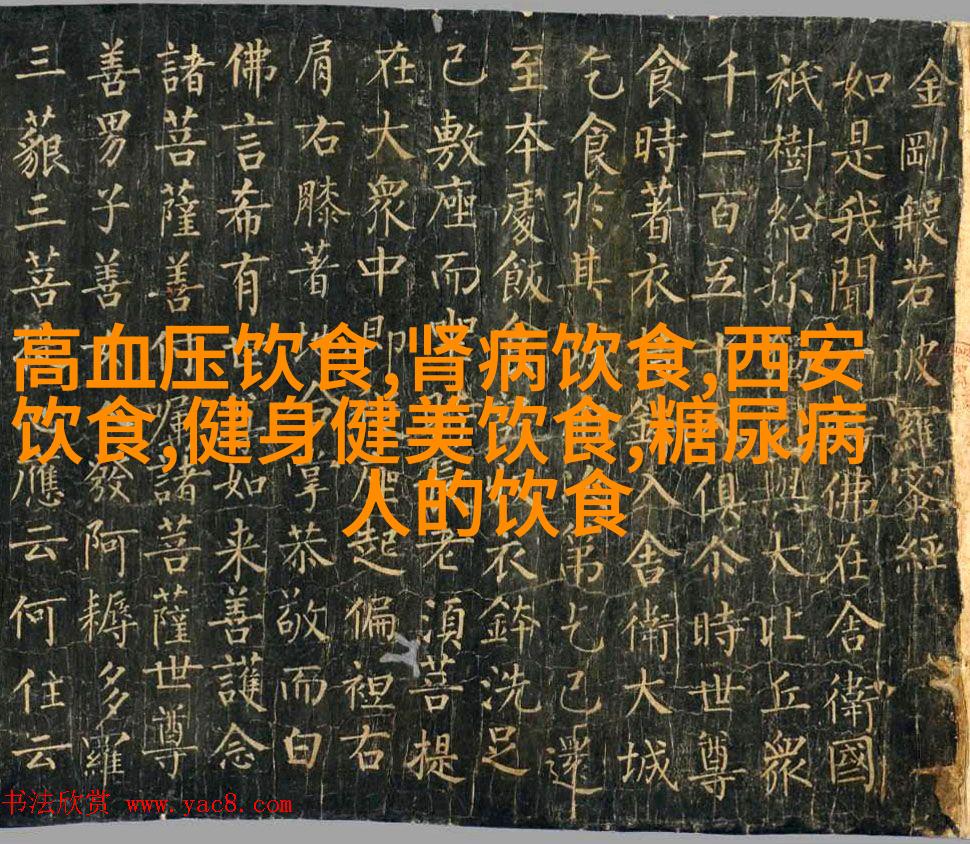 金剛般若波羅蜜經
如是我聞佛在舍衛國
祇樹給孤與大比丘衆
千二百五十俱尒時世尊
食時著衣鉢入舍衛大城
乞食於其第乞已還
至本處飯食衣鉢洗足
已敷座而坐長老須菩提
在大衆中即座起偏袒右
肩右膝著地合掌恭敬而白
佛言希有如来善護念
諸菩薩善付囑諸菩薩世尊
善男子善女發阿耨多羅
三藐三菩應云何住云
高血压饮食,肾病饮食,西安
饮食,健身健美饮食,糖尿病
人的饮食
书法欣赏 www.yac8.com